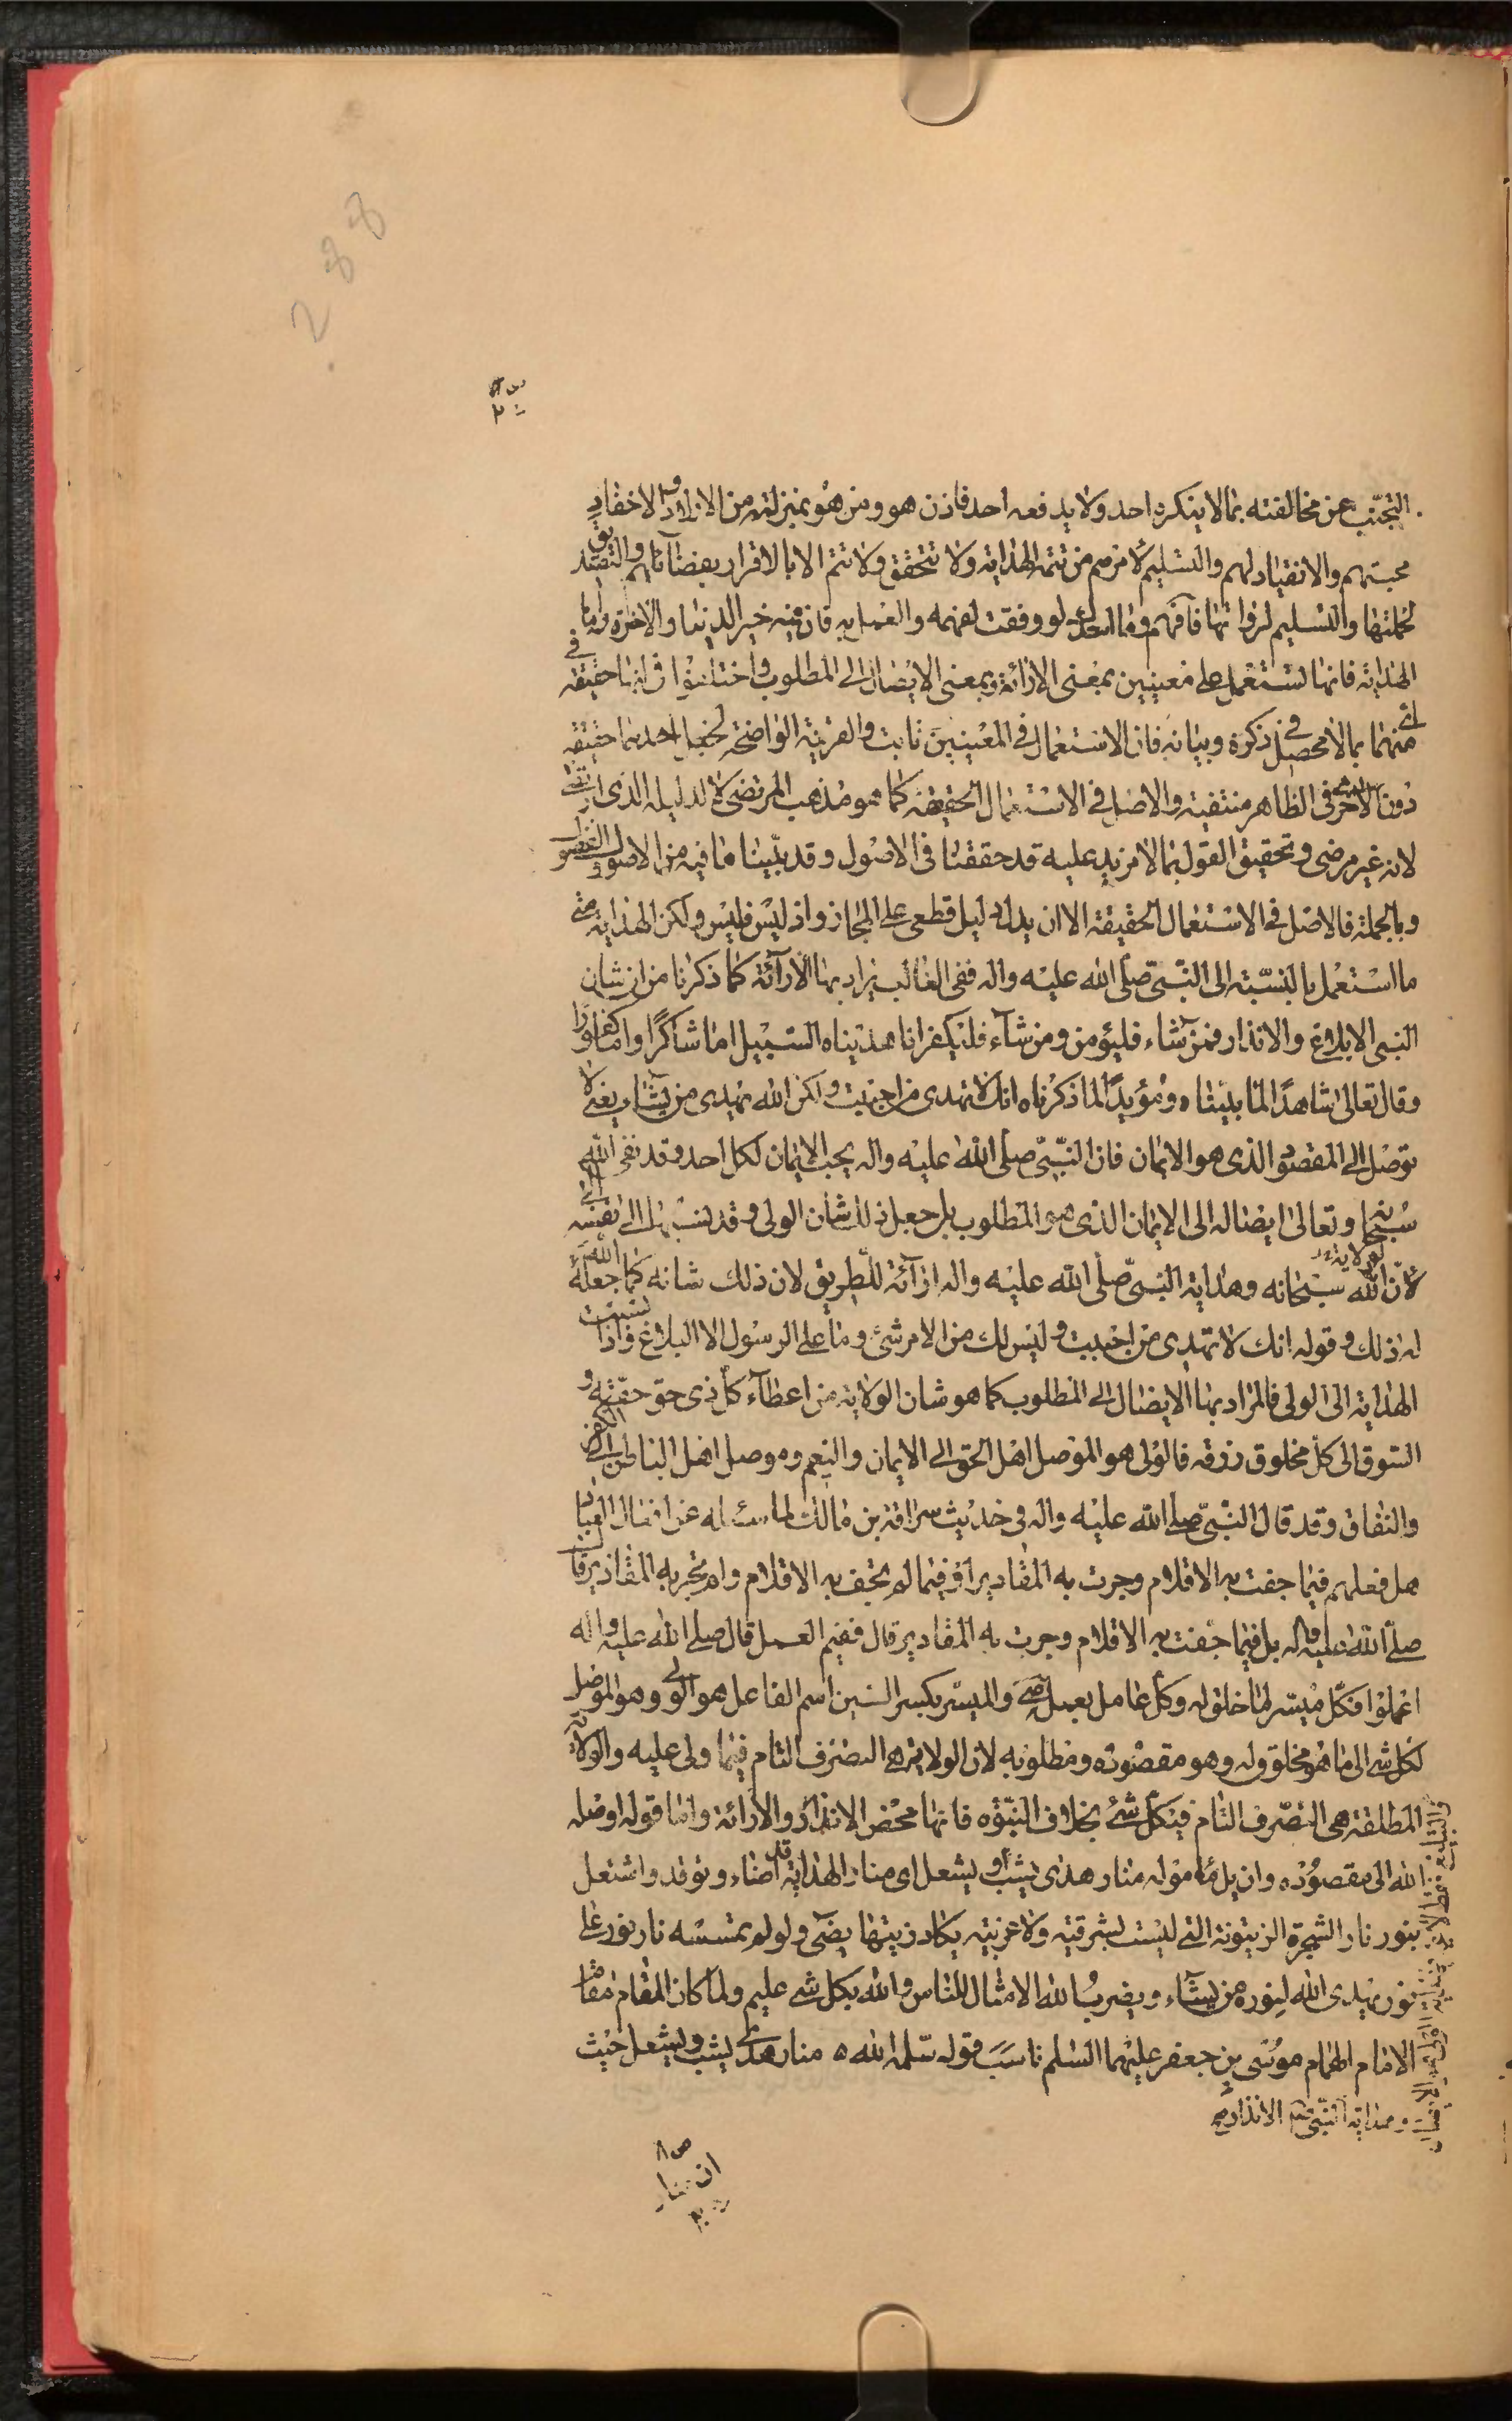 288
التجنّب عن مخالفته بما لا ينكره احد ولا يدفعه احد فاذن هو ومن هو بمنزلته من الاولاد والاحفاد
محبتهم والانقياد لهم والتسليم لامرهم من تتمة الهداية ولا تتحقق ولا تتم الا بالاقرار بفضائلهم والتصديق
لحملتها والتسليم لرواتها فافهم لو وفقت لفهمه والعمل به فان فيه خير الدنيا والاخرة واما
الهداية فانها تستعمل على معنيين بمعنى الارائة وبمعنى الايصال الى المطلوب واختلفوا فى انها حقيقة فى
اى منهما بما لا محصل فى ذكره وبيانه فان الاستعمال فى المعنيين ثابت والقرينة الواضحة لجعل احدهما حقيقة
دون الاخر فى الظاهر منتفية والاصل فى الاستعمال الحقيقة كما هو مذهب المرتضى لا لدليله الذى ارتضى
لانه غير مرضى وتحقيق القول بما لا مزيد عليه قد حققنا فى الاصول وقد بيّنا ما فيه من الاصول والفصول
وبالجملة فالاصل فى الاستعمال الحقيقة الا ان يدل دليل قطعى على المجاز واذ ليس فليس ولكن الهداية متى
ما استعمل بالنسبة الى النبىّ صلى الله عليه واله ففى الغالب يراد بها الارآئة كما ذكرنا من ان شان
النبى الابلاغ والانذار فمن شاء فليؤمن ومن شآء فليكفر انا هديناه السبيل اما شاكرًا واما كفورًا
وقال تعالى شاهدًا لما بيّناه ومؤيدًا لما ذكرناه انك لا تهدى من احببت ولكن الله يهدى من يشاء يعنى لا
توصل الى المقصود الذى هو الايمان فان النبىّ صلى الله عليه واله يحب الايمان لكل احد وقد نفى الله
سبحانه وتعالى ايصاله الى الايمان الذى هو المطلوب بل جعل ذلك شان الولى وقد نسبها الى نفسه
لان الولاية لله سبحانه وهداية النبىّ صلى الله عليه واله ارآئة للطريق لان ذلك شانه كما جعله الله
له ذلك وقوله انك لا تهدى من احببت وليس لك من الامر شئ وما على الرسول الا البلاغ فاذا نسبت
الهداية الى الولى فالمراد بها الايصال الى المطلوب كما هو شان الولاية من اعطآء كل ذى حق حقه و
السوق الى كل مخلوق رزقه فالولى هو الموصل اهل الحق الى الايمان والنعم وموصل اهل الباطل الى الكفر
والنفاق وقد قال النبىّ صلى الله عليه واله فى حديث سراقة بن مالك لما سئله عن افعال العباد
هل فعلهم فيما جفت به الاقلام وجرت به المقادير او فيما لم تجف به الاقلام ولم تجر به المقادير قال
صلى الله عليه واله بل فيما جفت به الاقلام وجرت به المقادير قال ففيم العمل قال صلى الله عليه واله
اعملوا فكل ميسّر لما خلق له وكل عامل بعمله والميسّر بكسر السين اسم الفاعل هو الولى وهو الموصل
لكل شئ الى ما هو مخلوق له وهو مقصوده ومطلوبه لان الولاية هى التصرف التام فيما ولى عليه والولاية
المطلقة هى التصرف التام فى كل شئ بخلاف النبوّة فانها محض الانذار والارائة واما قوله اوصله
الله الى مقصوده منار هدى يشب او يشعل اى منار الهداية قد اضاء وتوقد واشتعل
بنور نار الشجرة الزيتونة التى ليست بشرقية ولا غربية يكاد زيتها يضئ ولو لم تمسسه نار نور على
نور يهدى الله لنوره من يشاء ويضرب الله الامثال للناس والله بكل شئ عليم ولما كان المقام مقام
الامام الهمام موسى بن جعفر عليهما السلم ناسب قوله سلمه الله منار هدى يشب ويشعل حيث
وهداية النبى الانذار